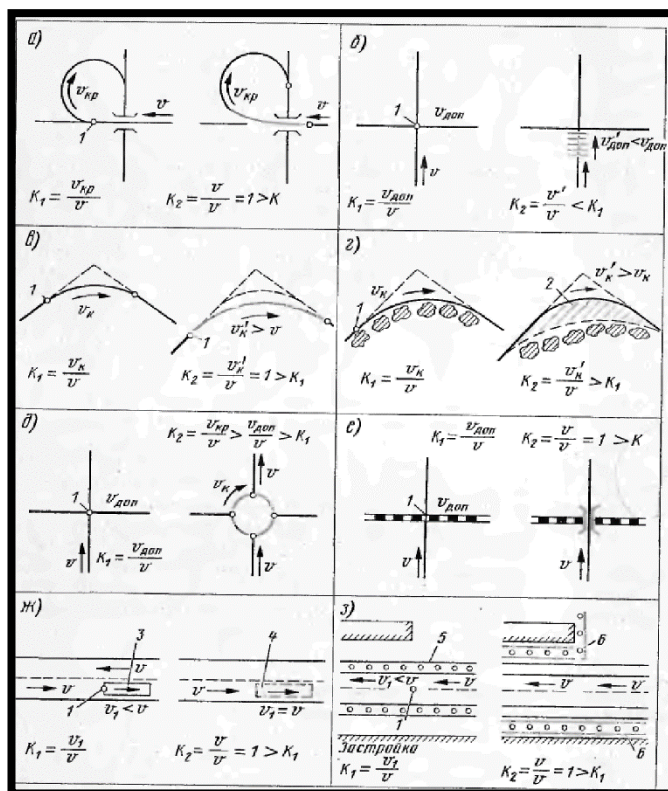 а)
v_кр
v
1
v_кр
v
K₁ = v_кр/v
K₂ = v/v = 1 > K
б)
1
v_доп
v
v'_доп < v_доп
K₁ = v_доп/v
K₂ = v'/v < K₁
в)
1
v_к
1
v'_к > v
K₁ = v_к/v
K₂ = v'_к/v = 1 > K₁
г)
v_к
1
2
v'_к > v_к
K₁ = v_к/v
K₂ = v'_к/v > K₁
д)
K₂ = v_кр/v > v_доп/v > K₁
1
v_доп
v
v_к
v
v
K₁ = v_доп/v
е)
K₁ = v_доп/v
K₂ = v/v = 1 > K
1
v_доп
v
v
ж)
3
4
v
v
v
1
v₁ < v
v₁ = v
K₁ = v₁/v
K₂ = v/v = 1 > K₁
з)
5
6
v₁ < v
v
v
v
1
Застройка
6
K₁ = v₁/v
K₂ = v/v = 1 > K₁